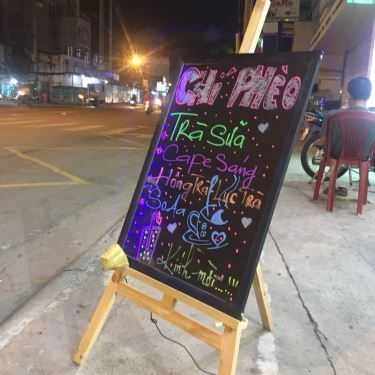 Chí PHÈO
Trà Sữa
Cafe Sáng
Hồng Trà, Lục Trà
Soda
Kính mời...!!!